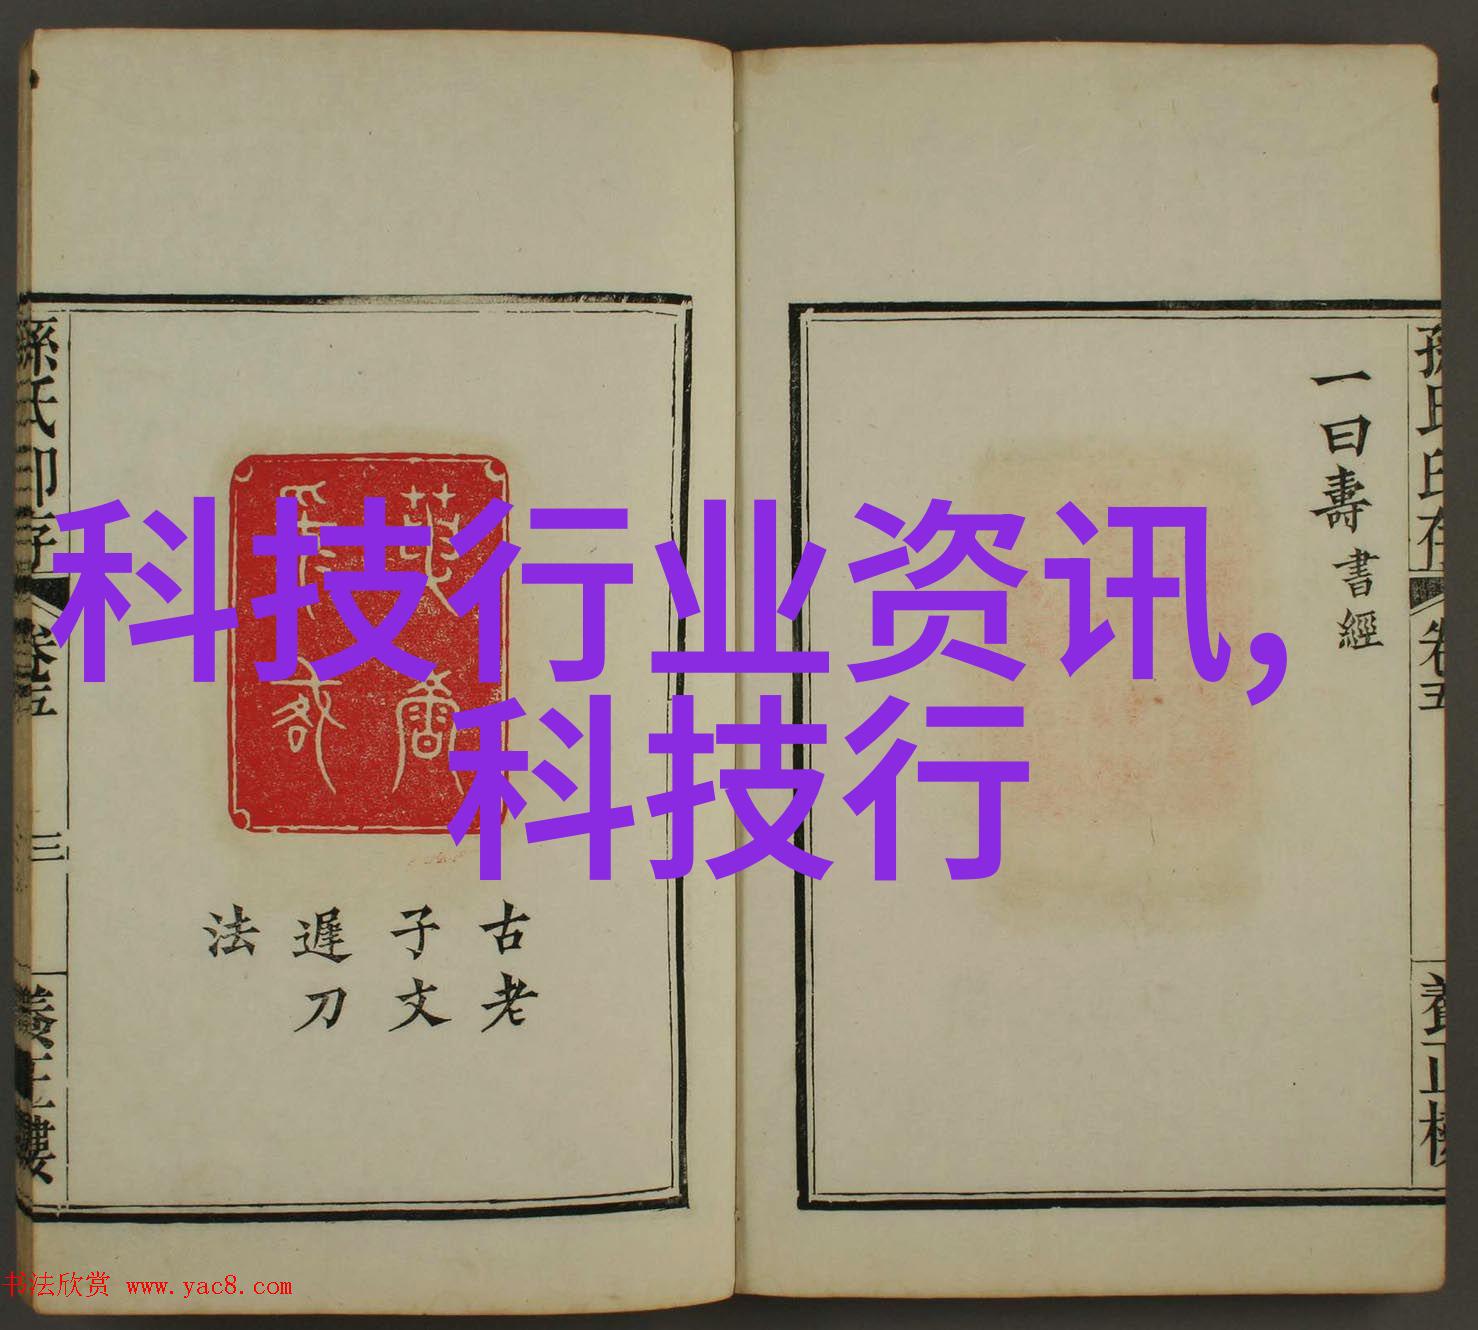 科技行业资讯,
科技行
一曰壽書經
孫氏印存
卷五
養正樓
古老
子文
遲刀
法
孫氏印存
卷五
三
養正樓
书法欣赏 www.yac8.com